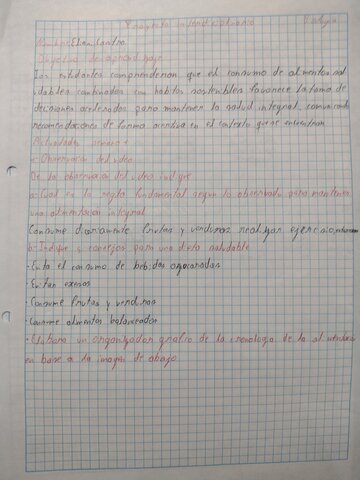 Proyecto interdisciplinario
Nombre: Elian Castro
Objetivo de aprendizaje
Los estudiantes comprenderan que el consumo de alimentos sal
udables combinados con habitos sostenibles favorece la toma de
decisiones acertadas para mantener la salud integral, comunicando
recomendaciones de forma asertiva en el contexto que se encuentran
Actividades semana 1
Observacion del video
De la observacion del video indique
a. Cual es la regla fundamental segun lo observado para mantener
una alimentacion integral
Consume diariamente frutas y verduras realizan ejercicio,
b. Indique 5 consejos para una dieta saludable
· Evita el consumo de bebidas azucaradas
Evitan exesos
· Consume frutas y verduras
· Consume alimentos balanceados
· Elabora un organizador grafico de la cronologia de la
en base a la imagen de abajo